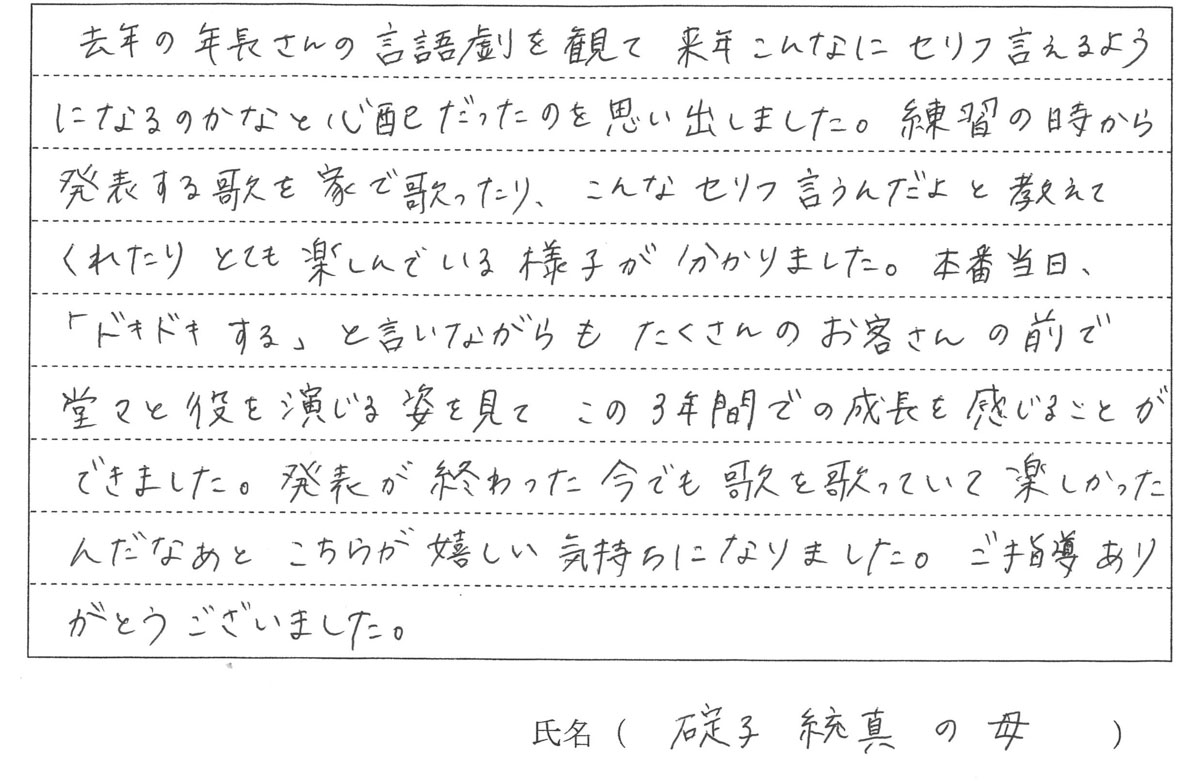 去年の年長さんの言語劇を観て 来年こんなにセリフ言えるよう
になるのかなと心配だったのを思い出しました。練習の時から
発表する歌を家で歌ったり、こんなセリフ言うんだよと教えて
くれたりとても楽しんでいる様子が分かりました。本番当日、
「ドキドキする」と言いながらも たくさんのお客さんの前で
堂々と役を演じる姿を見て この3年間での成長を感じることが
できました。発表が終わった今でも歌を歌っていて楽しかった
んだなあと こちらが嬉しい気持ちになりました。ご指導あり
がとうございました。
氏名（ 碇子 統真 の 母 ）